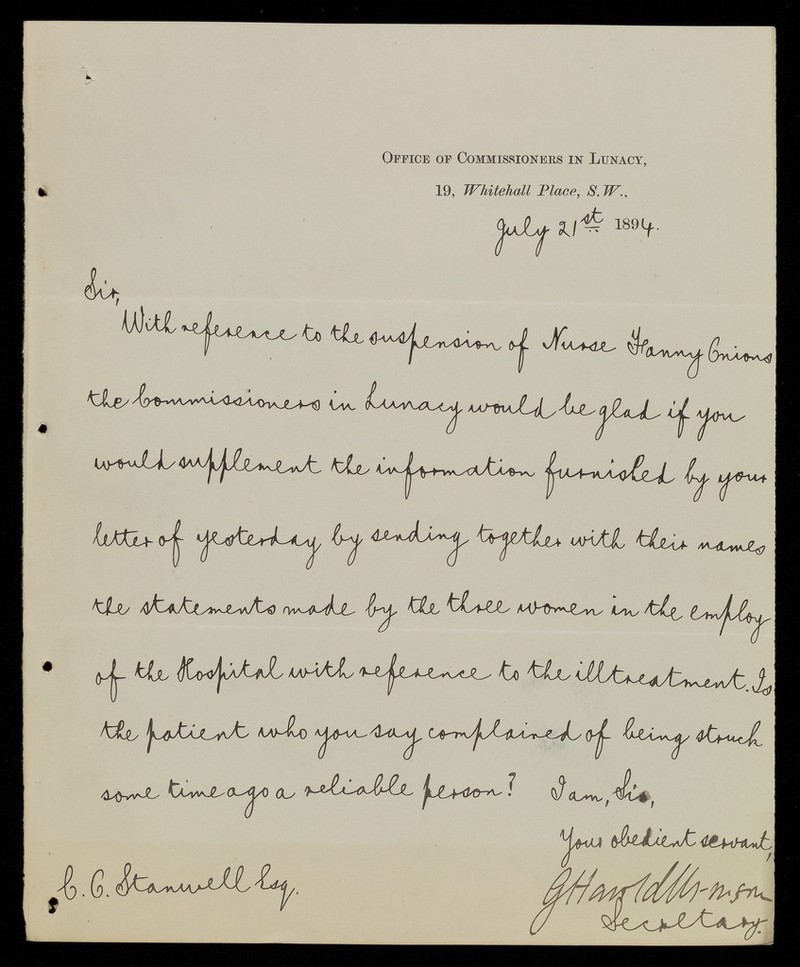 OFFICE OF COMMISSIONERS IN LUNACY,
19, Whitehall Place, S.W.,
July 21st 1894.
Sir,
With reference to the suspension of Nurse Fanny Onions
the Commissioners in Lunacy would be glad if you
would supplement the information furnished by your
letter of yesterday by sending together with their names
the statements made by the three women in the employ
of the Hospital with reference to the illtreatment. Is
the patient who you say complained of being struck
some time ago a reliable person? I am, Sir,
Your obedient servant,
G Harold
Secretary.
C. C. Stanwell Esq.